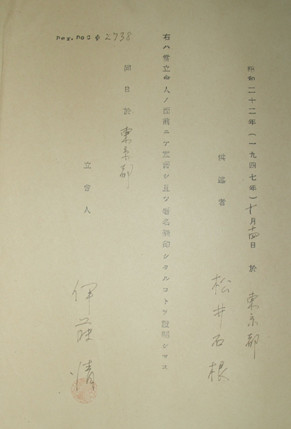 Def. Doc. # 2738
昭和二十二年(一九四七年)十月十四日 於 東京都
供述者 松井石根
右ハ當立會人ノ面前ニテ宣誓シ且ツ署名捺印シタルコトヲ證明シマス
同日於 東京都
立會人 伊藤清